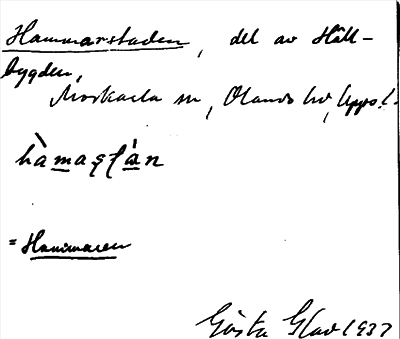 Hammarstaden, del av Håll-
bygden,
Morkarla sn, Olands hd, Upps. l.
= Hammaren
Gösta Glad 1937